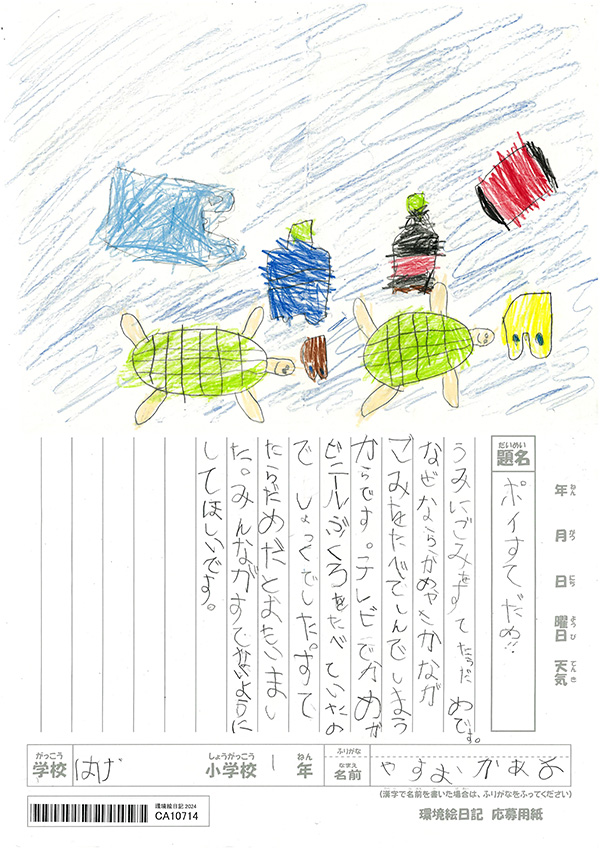 年 ねん 月 がつ 日 にち 曜日 ようび 天気 てんき
だいめい
題名
ポイすてだめ!!
うみにごみをすてたらだめです。
なぜならかめやさかなが
ごみをたべてしんでしまう
からです。テレビでかめが
ビニールぶくろをたべていたの
で しょっくでした。すて
たらだめだとおもいまし
た。みんながすてないように
してほしいです。
がっこう しょうがっこう ねん ふりがな
学校 小学校 1 年 なまえ 名前
(漢字で名前を書いた場合は、ふりがなをふってください)
環境絵日記 2024
CA10714
環境絵日記 応募用紙